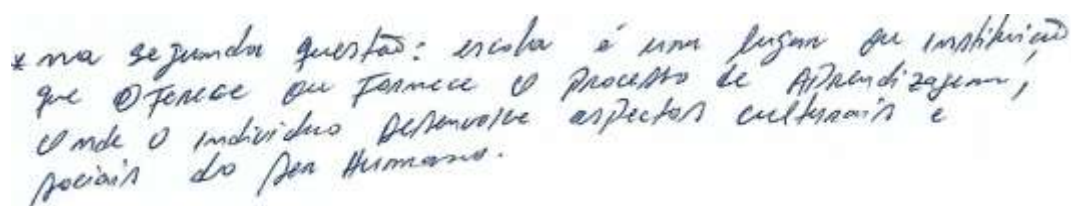 * na segunda questão: escola é um lugar ou instituição
que oferece ou fornece o processo de Aprendizagem,
onde o indivíduo desenvolve aspectos culturais e
sociais do ser Humano.